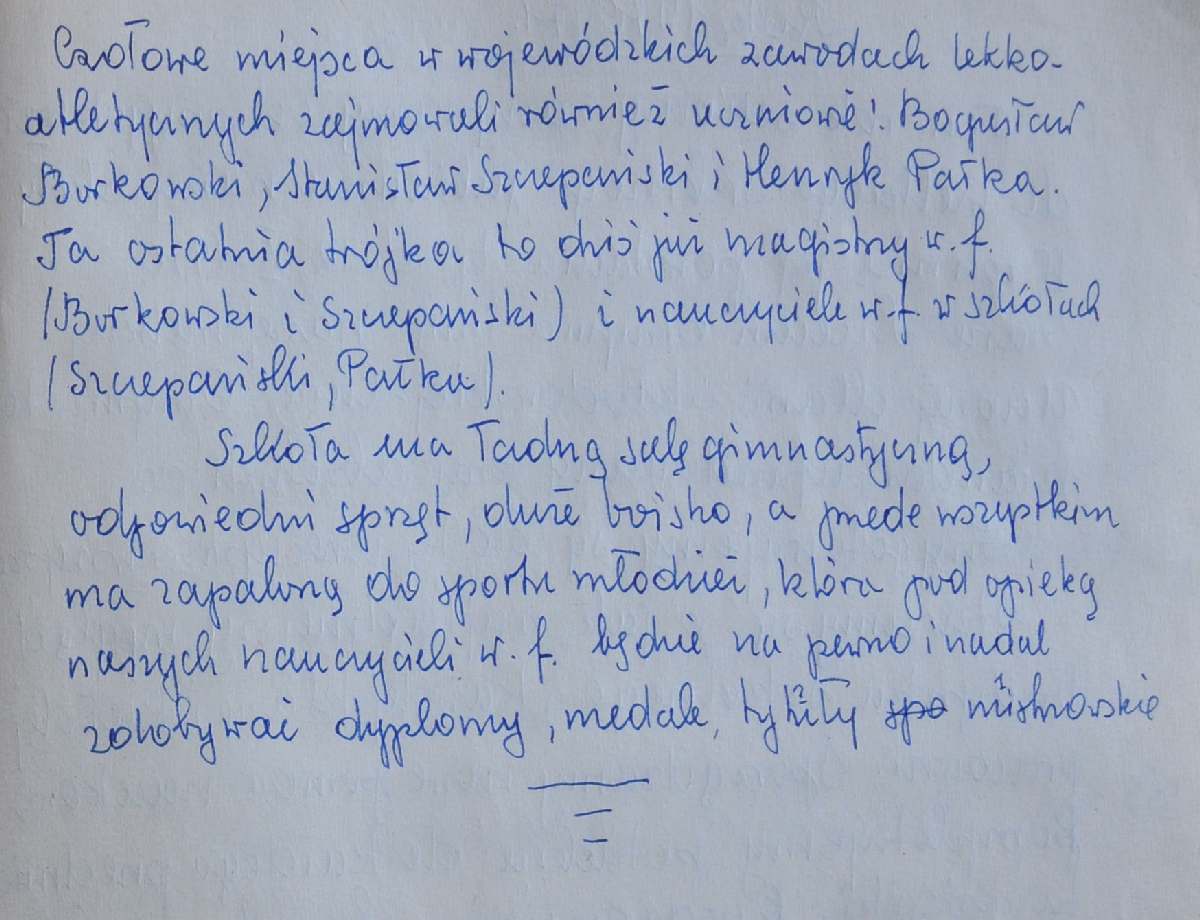 Czołowe miejsca w wojewódzkich zawodach lekko-
atletycznych zajmowali również uczniowie: Bogusław
Borkowski, Stanisław Szczepański i Henryk Pałka.
Ta ostatnia trójka to dziś już magistrzy w.f.
(Borkowski i Szczepański) i nauczyciele w.f. w szkołach
(Szczepański, Pałka).
Szkoła ma ładną salę gimnastyczną,
odpowiedni sprzęt, duże boisko, a przede wszystkim
ma zapaloną do sportu młodzież, która pod opieką
naszych nauczycieli w.f. będzie na pewno i nadal
zdobywać dyplomy, medale, tytuły mistrzowskie